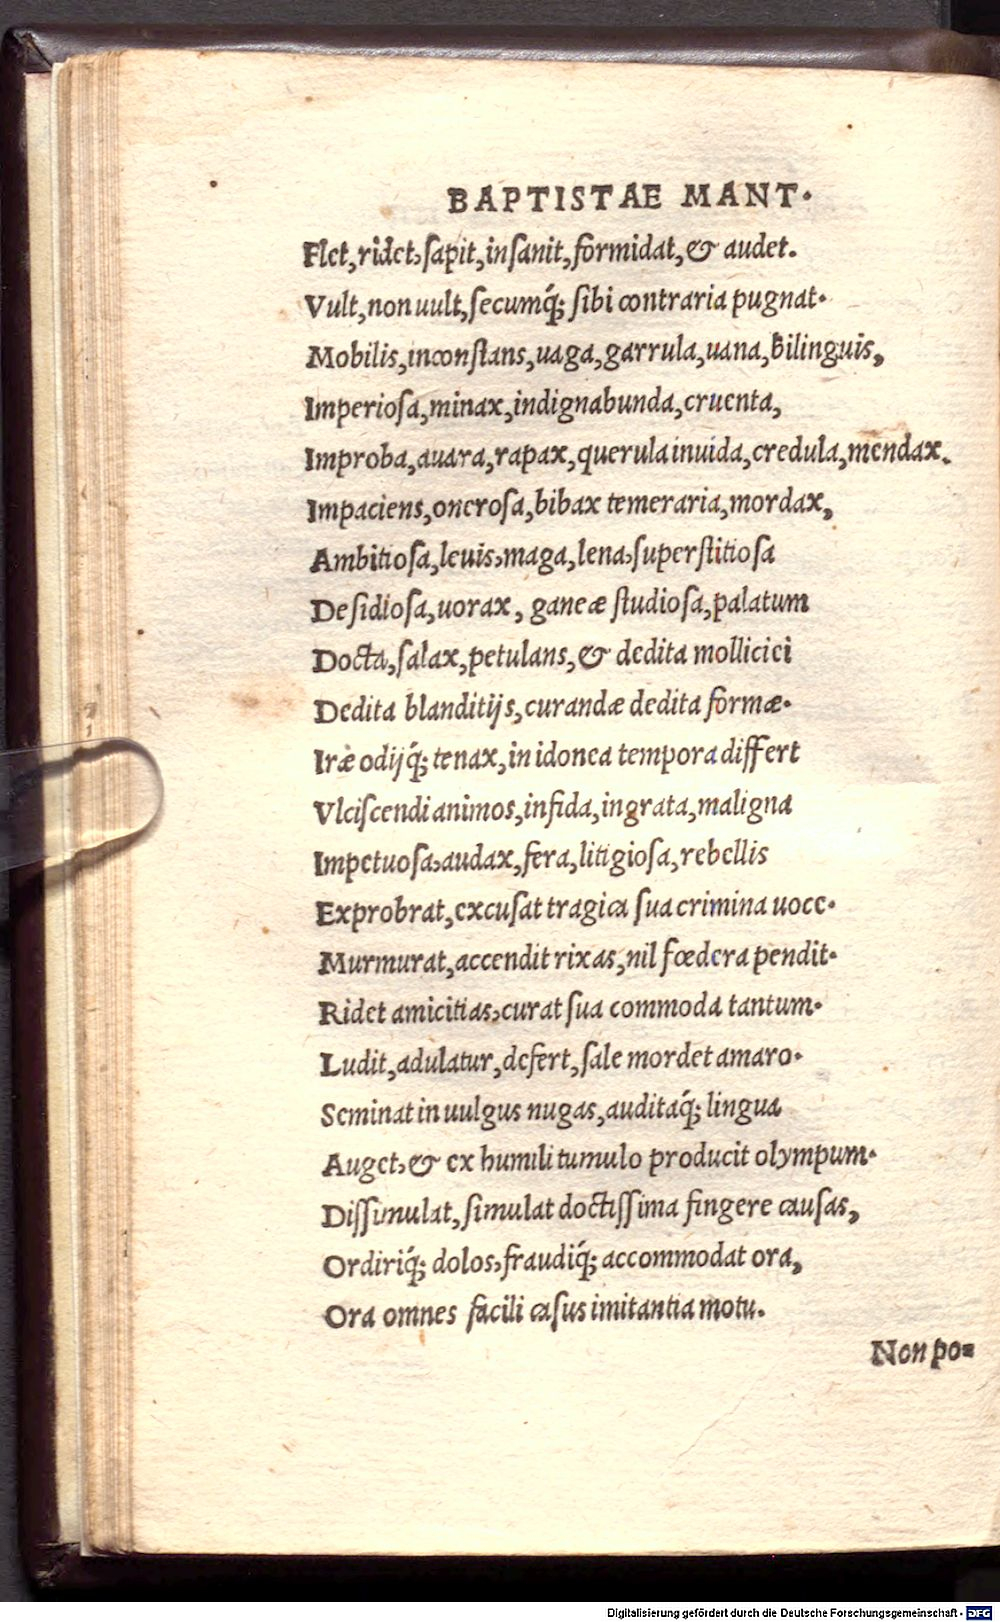 BAPTISTAE MANT.
Flet,ridet,ſapit,inſanit,formidat,& audet.
Vult,non uult,ſecumq́; ſibi contraria pugnat.
Mobilis,inconſtans,uaga,garrula,uana,bilinguis,
Imperioſa,minax,indignabunda,cruenta,
Improba,auara,rapax,querula inuida,credula,mendax.
Impaciens,oneroſa,bibax temeraria,mordax,
Ambitioſa,leuis,maga,lena,ſuperſtitioſa
Deſidioſa,uorax, ganeæ ſtudioſa,palatum
Docta,ſalax,petulans,& dedita molliciei
Dedita blanditijs,curandæ dedita formæ.
Iræ odijq́; tenax,in idonea tempora differt
Vlciſcendi animos,infida,ingrata,maligna
Impetuoſa,audax,fera,litigioſa,rebellis
Exprobrat,excuſat tragica ſua crimina uoce.
Murmurat,accendit rixas,nil fœdera pendit.
Ridet amicitias,curat ſua commoda tantum.
Ludit,adulatur,defert,ſale mordet amaro.
Seminat in uulgus nugas,auditaq́; lingua
Auget,& ex humili tumulo producit olympum.
Diſſimulat,ſimulat doctiſſima fingere cauſas,
Ordiriq́; dolos,fraudiq́; accommodat ora,
Ora omnes facili caſus imitantia motu.
Non po=
Digitalisierung gefördert durch die Deutsche Forschungsgemeinschaft - DFG